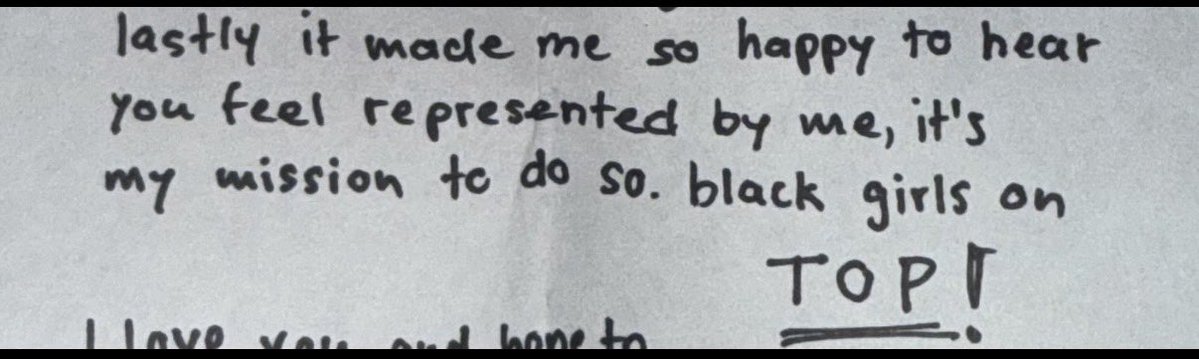 lastly it made me so happy to hear
you feel represented by me, it's
my mission to do so. black girls on
TOP!
I love you and hope to